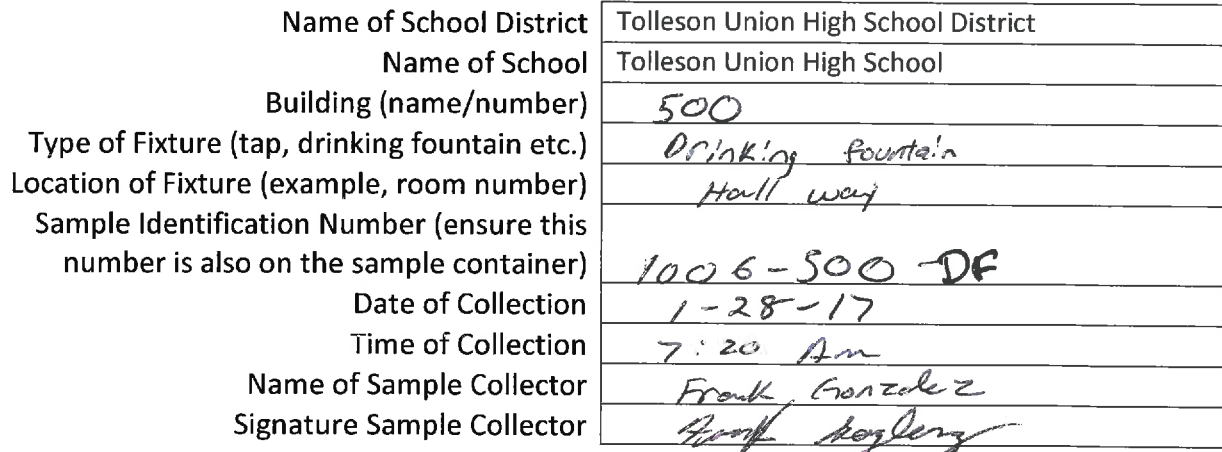 Name of School District Tolleson Union High School District
Name of School Tolleson Union High School
Building (name/number) 500
Type of Fixture (tap, drinking fountain etc.) Drinking fountain
Location of Fixture (example, room number) Hall way
Sample Identification Number (ensure this
number is also on the sample container) 1006-500-DF
Date of Collection 1-28-17
Time of Collection 7:20 Am
Name of Sample Collector Frank Gonzalez
Signature Sample Collector